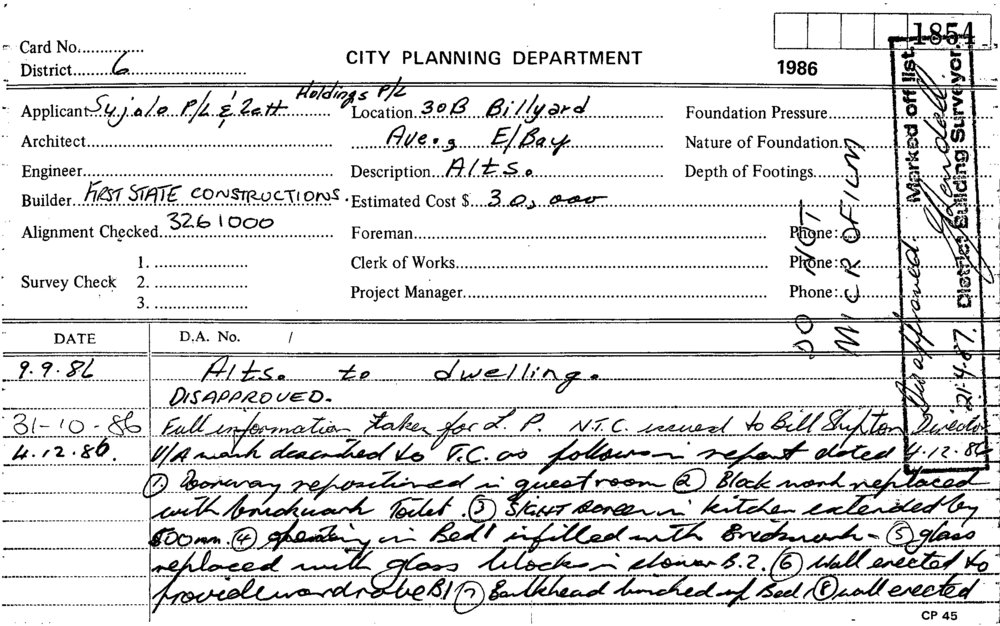 1854
Card No.
District 6
CITY PLANNING DEPARTMENT
1986
Applicant Sujalo P/L & Zett Holdings P/L
Location 30B Billyard
Foundation Pressure
Architect
Ave., E/Bay
Nature of Foundation
Engineer
Description Alts.
Depth of Footings
Builder FIRST STATE CONSTRUCTIONS.
Estimated Cost $ 30,000
Alignment Checked 3261000
Foreman
Phone:
Survey Check
1.
2.
3.
Clerk of Works
Phone:
Project Manager
Phone:
DO NOT
MICROFILM
Marked off list.
Disapproved.
District Building Surveyor.
21.4.87.
DATE
D.A. No. /
9.9.86
Alts. to dwelling.
DISAPPROVED.
31-10-86
Full information taken for L.P. N.T.C. issued to Bill Shipton Director
4.12.86.
U/A work described to T.C. as follows in report dated 4.12.86
① Doorway repositioned in guestroom ② Block work replaced
with brickwork Toilet. ③ SIGHT screen in kitchen extended by
500mm. ④ opening in Bed 1 infilled with Brickwork - ⑤ glass
replaced with glass blocks in shower B.2. ⑥ Wall erected to
provide wardrobe B1 ⑦ Bulkhead bricked up Bed 1 ⑧ wall erected
CP 45